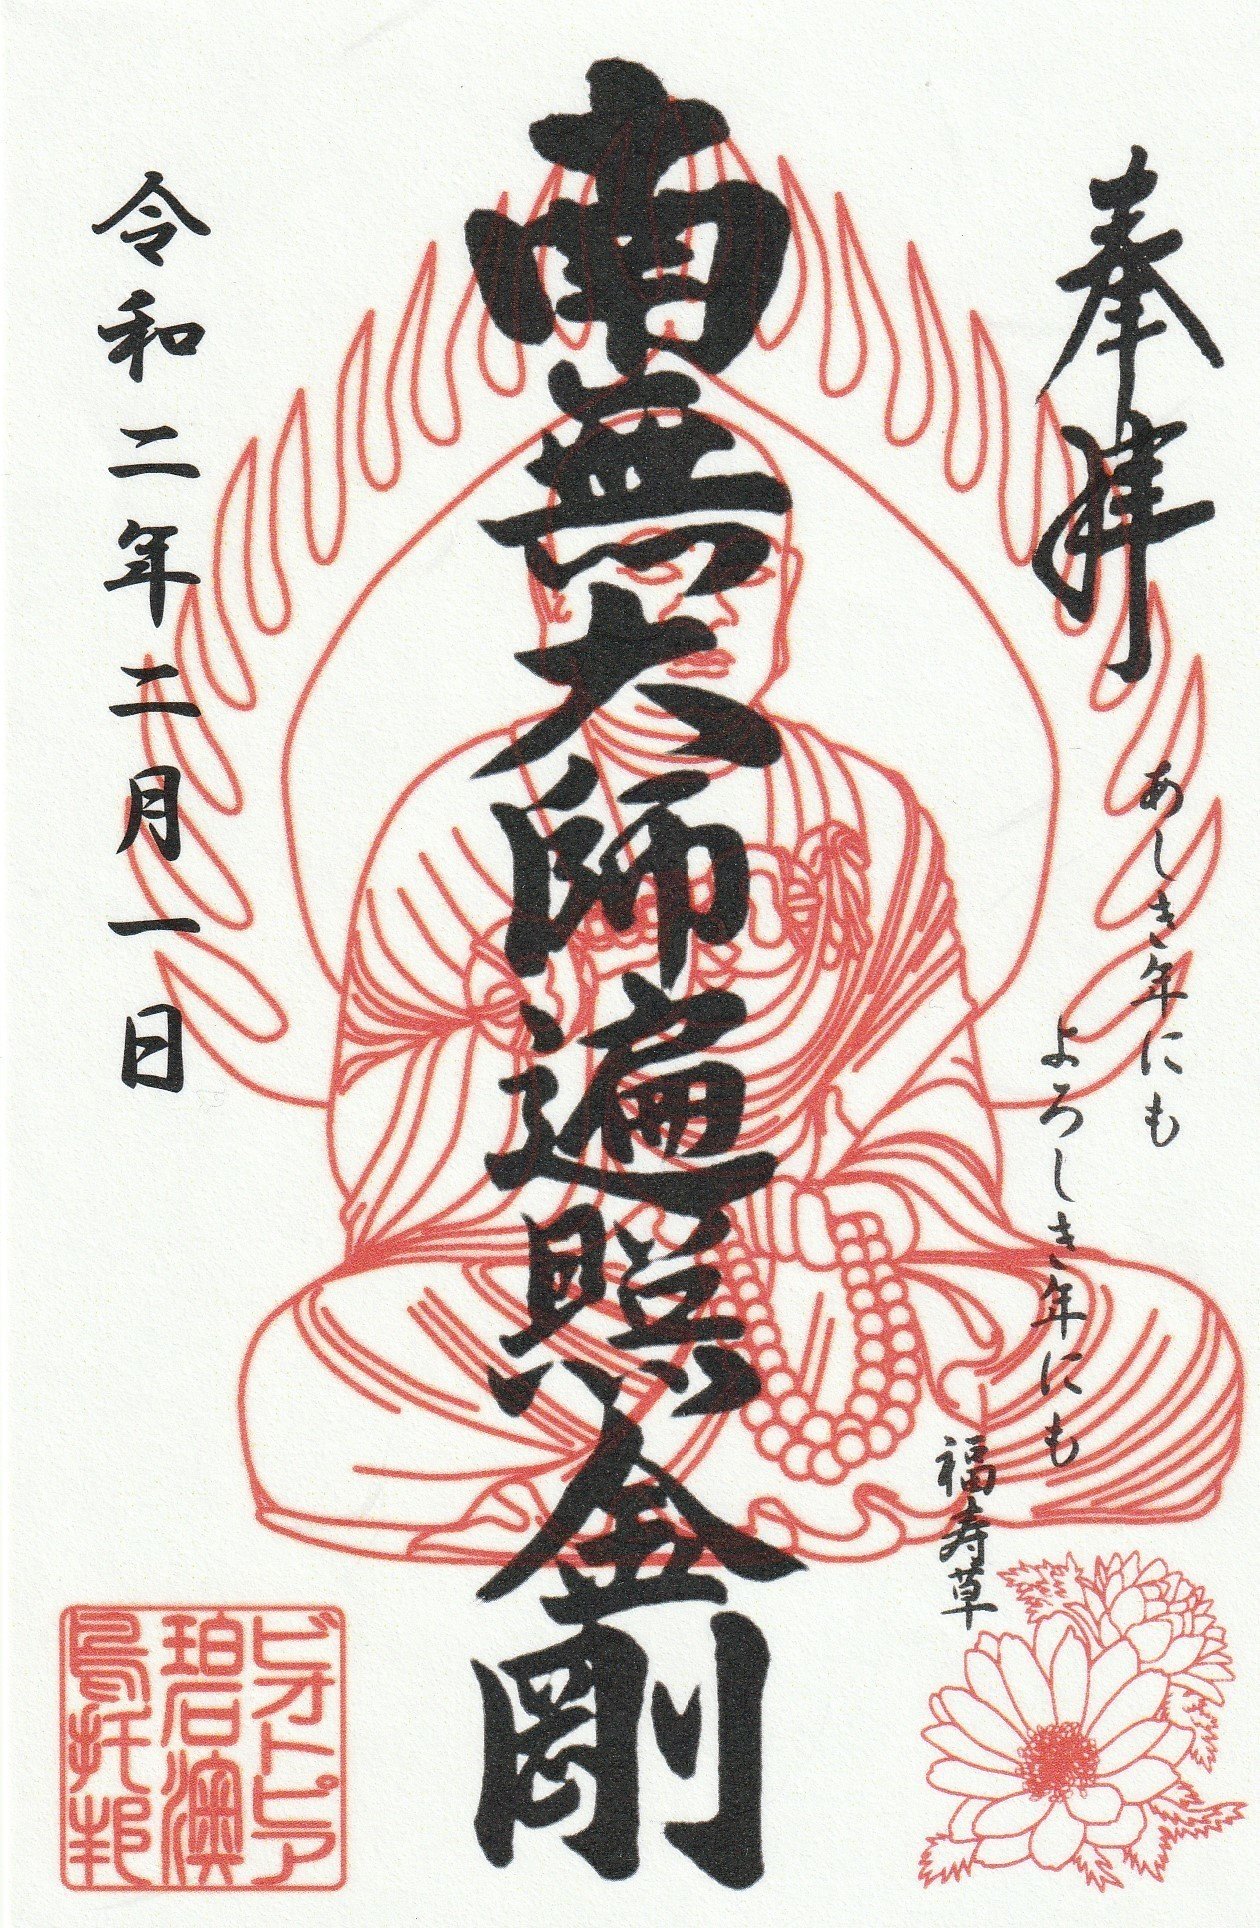 奉拝
あしき年にも
よろしき年にも
福寿草
南無大師遍照金剛
令和二年二月一日
ビオトピア
碧澳
烏托邦